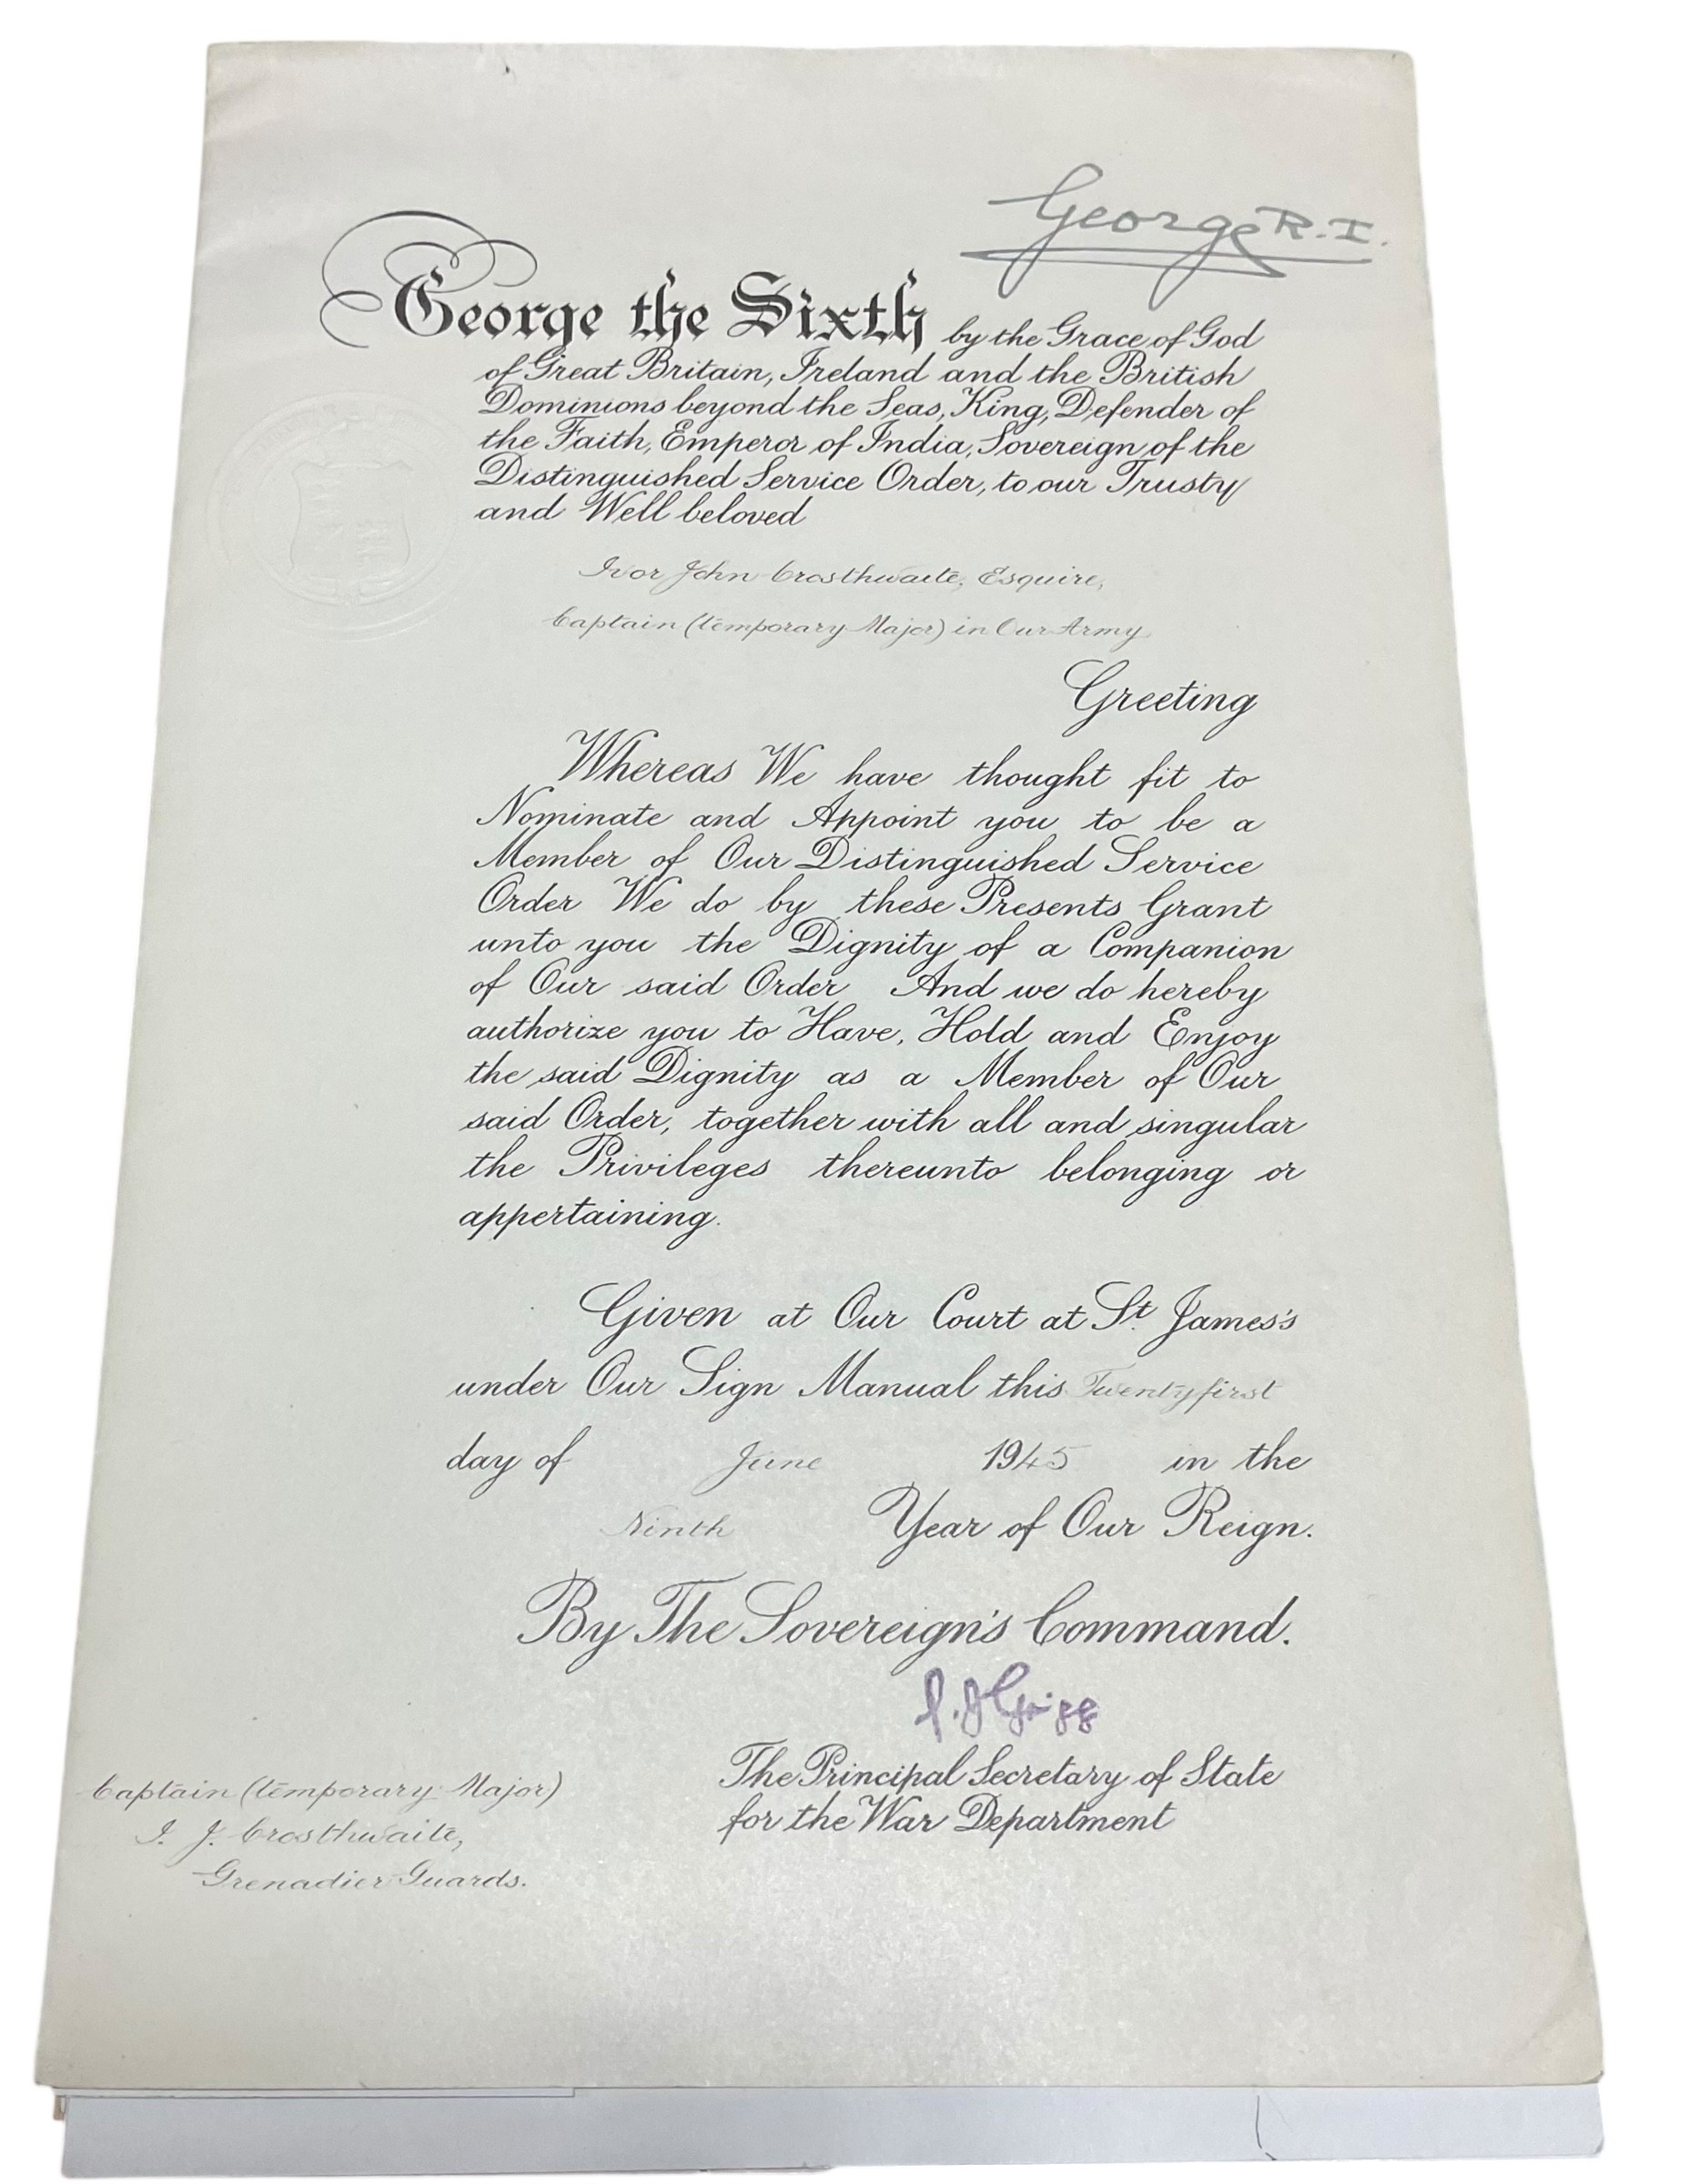 George R.I.
George the Sixth by the Grace of God
of Great Britain, Ireland and the British
Dominions beyond the Seas, King, Defender of
the Faith, Emperor of India, Sovereign of the
Distinguished Service Order, to our Trusty
and Well beloved
Ivor John Crosthwaite, Esquire,
Captain (temporary Major) in Our Army
Greeting
Whereas We have thought fit to
Nominate and Appoint you to be a
Member of Our Distinguished Service
Order We do by these Presents Grant
unto you the Dignity of a Companion
of Our said Order And we do hereby
authorize you to Have, Hold and Enjoy
the said Dignity as a Member of Our
said Order, together with all and singular
the Privileges thereunto belonging or
appertaining.
Given at Our Court at St. James's
under Our Sign Manual this Twenty first
day of June 1945 in the
Ninth Year of Our Reign.
By The Sovereign's Command.
P. J. Grigg
The Principal Secretary of State
for the War Department
Captain (temporary Major)
I. J. Crosthwaite,
Grenadier Guards.